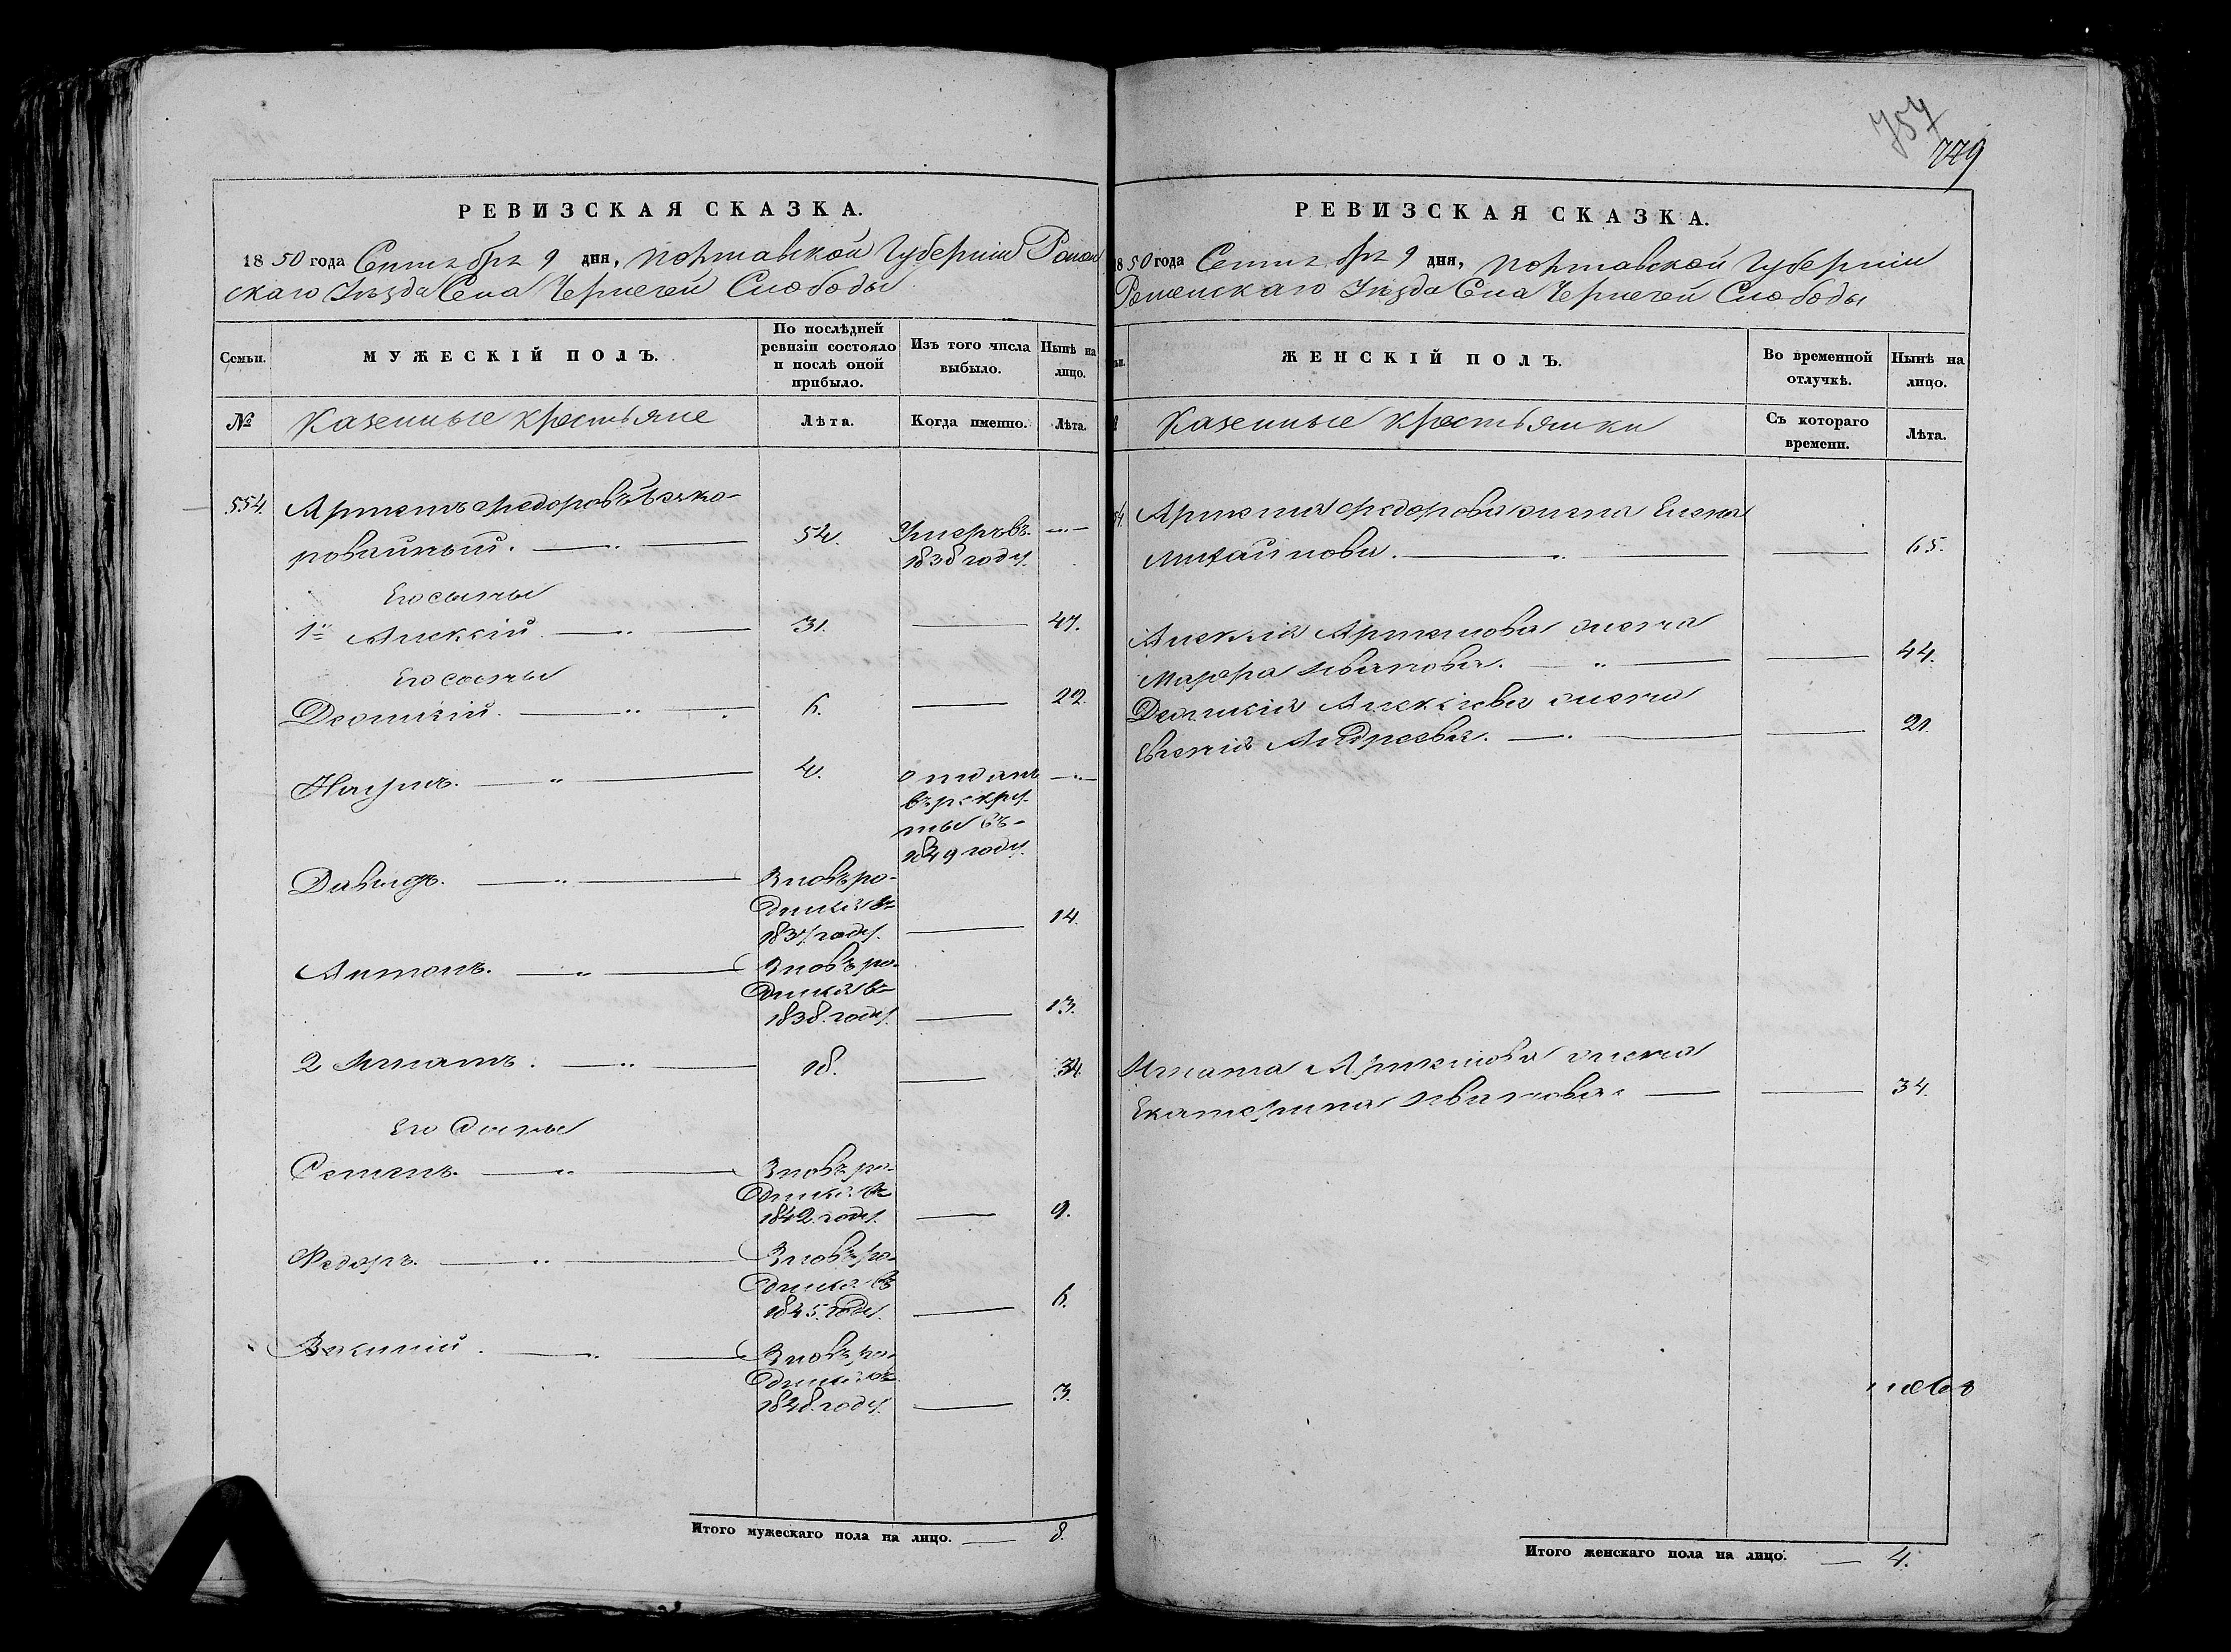 757
779
РЕВИЗСКАЯ СКАЗКА.
1850 года Сентября 9 дня, Полтавской Губернии Ромен
скаго Уѣзда Села Чернечей Слободы
Семьи.
МУЖЕСКІЙ ПОЛЪ.
По послѣдней ревизіи состояло и послѣ оной прибыло.
Изъ того числа выбыло.
Нынѣ на лицо.
№
Казенные крестьяне
Лѣта.
Когда именно.
Лѣта.
554. Артемъ Федоровъ
54. Умеръ въ
1838 году.
Его сыны
1й Алексій. 31. 47.
Его сыны
Леонтій. 6. 22.
Наумъ. 4. отданъ
въ рекру-
ты въ
1849 году.
Давидъ. Вновь ро-
дился въ
1837 году. 14.
Антонъ. Вновь ро-
дился въ
1838. году. 13.
2 Игнатъ. 18. 34.
Его Сыны
Семенъ. Вновь ро-
дился въ
1842. году. 9.
Федоръ. Вновь ро-
дился въ
1845. году. 6.
Вновь ро-
дился въ
1848. году. 3.
Итого мужескаго пола на лицо. 8.
РЕВИЗСКАЯ СКАЗКА.
850 года Сентября 9 дня, Полтавской Губерніи
Роменскаго Уѣзда Села Чернечей Слободы
ЖЕНСКІЙ ПОЛЪ.
Во временной отлучкѣ.
Нынѣ на лицо.
Казенные крестьянки
Съ котораго времени.
Лѣта.
54. Артема Федорова жена Елена
Михайлова. 65.
Алексія Артемова жена
Марфа Иванова. 44.
Леонтія Алексіева жена
Евгенія Андреева. 21.
Игната Артемова жена
Екатерина Иванова. 34.
Итого женскаго пола на лицо. 4.